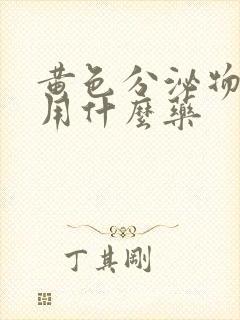 黄色分泌物
用什麼藥
丁其剛